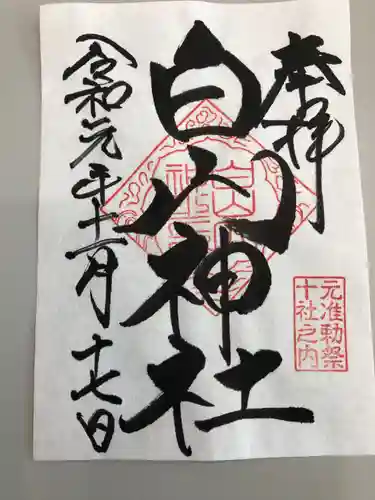 奉拝
元准勅祭
十社之内
白山神社
令和元年十一月十七日